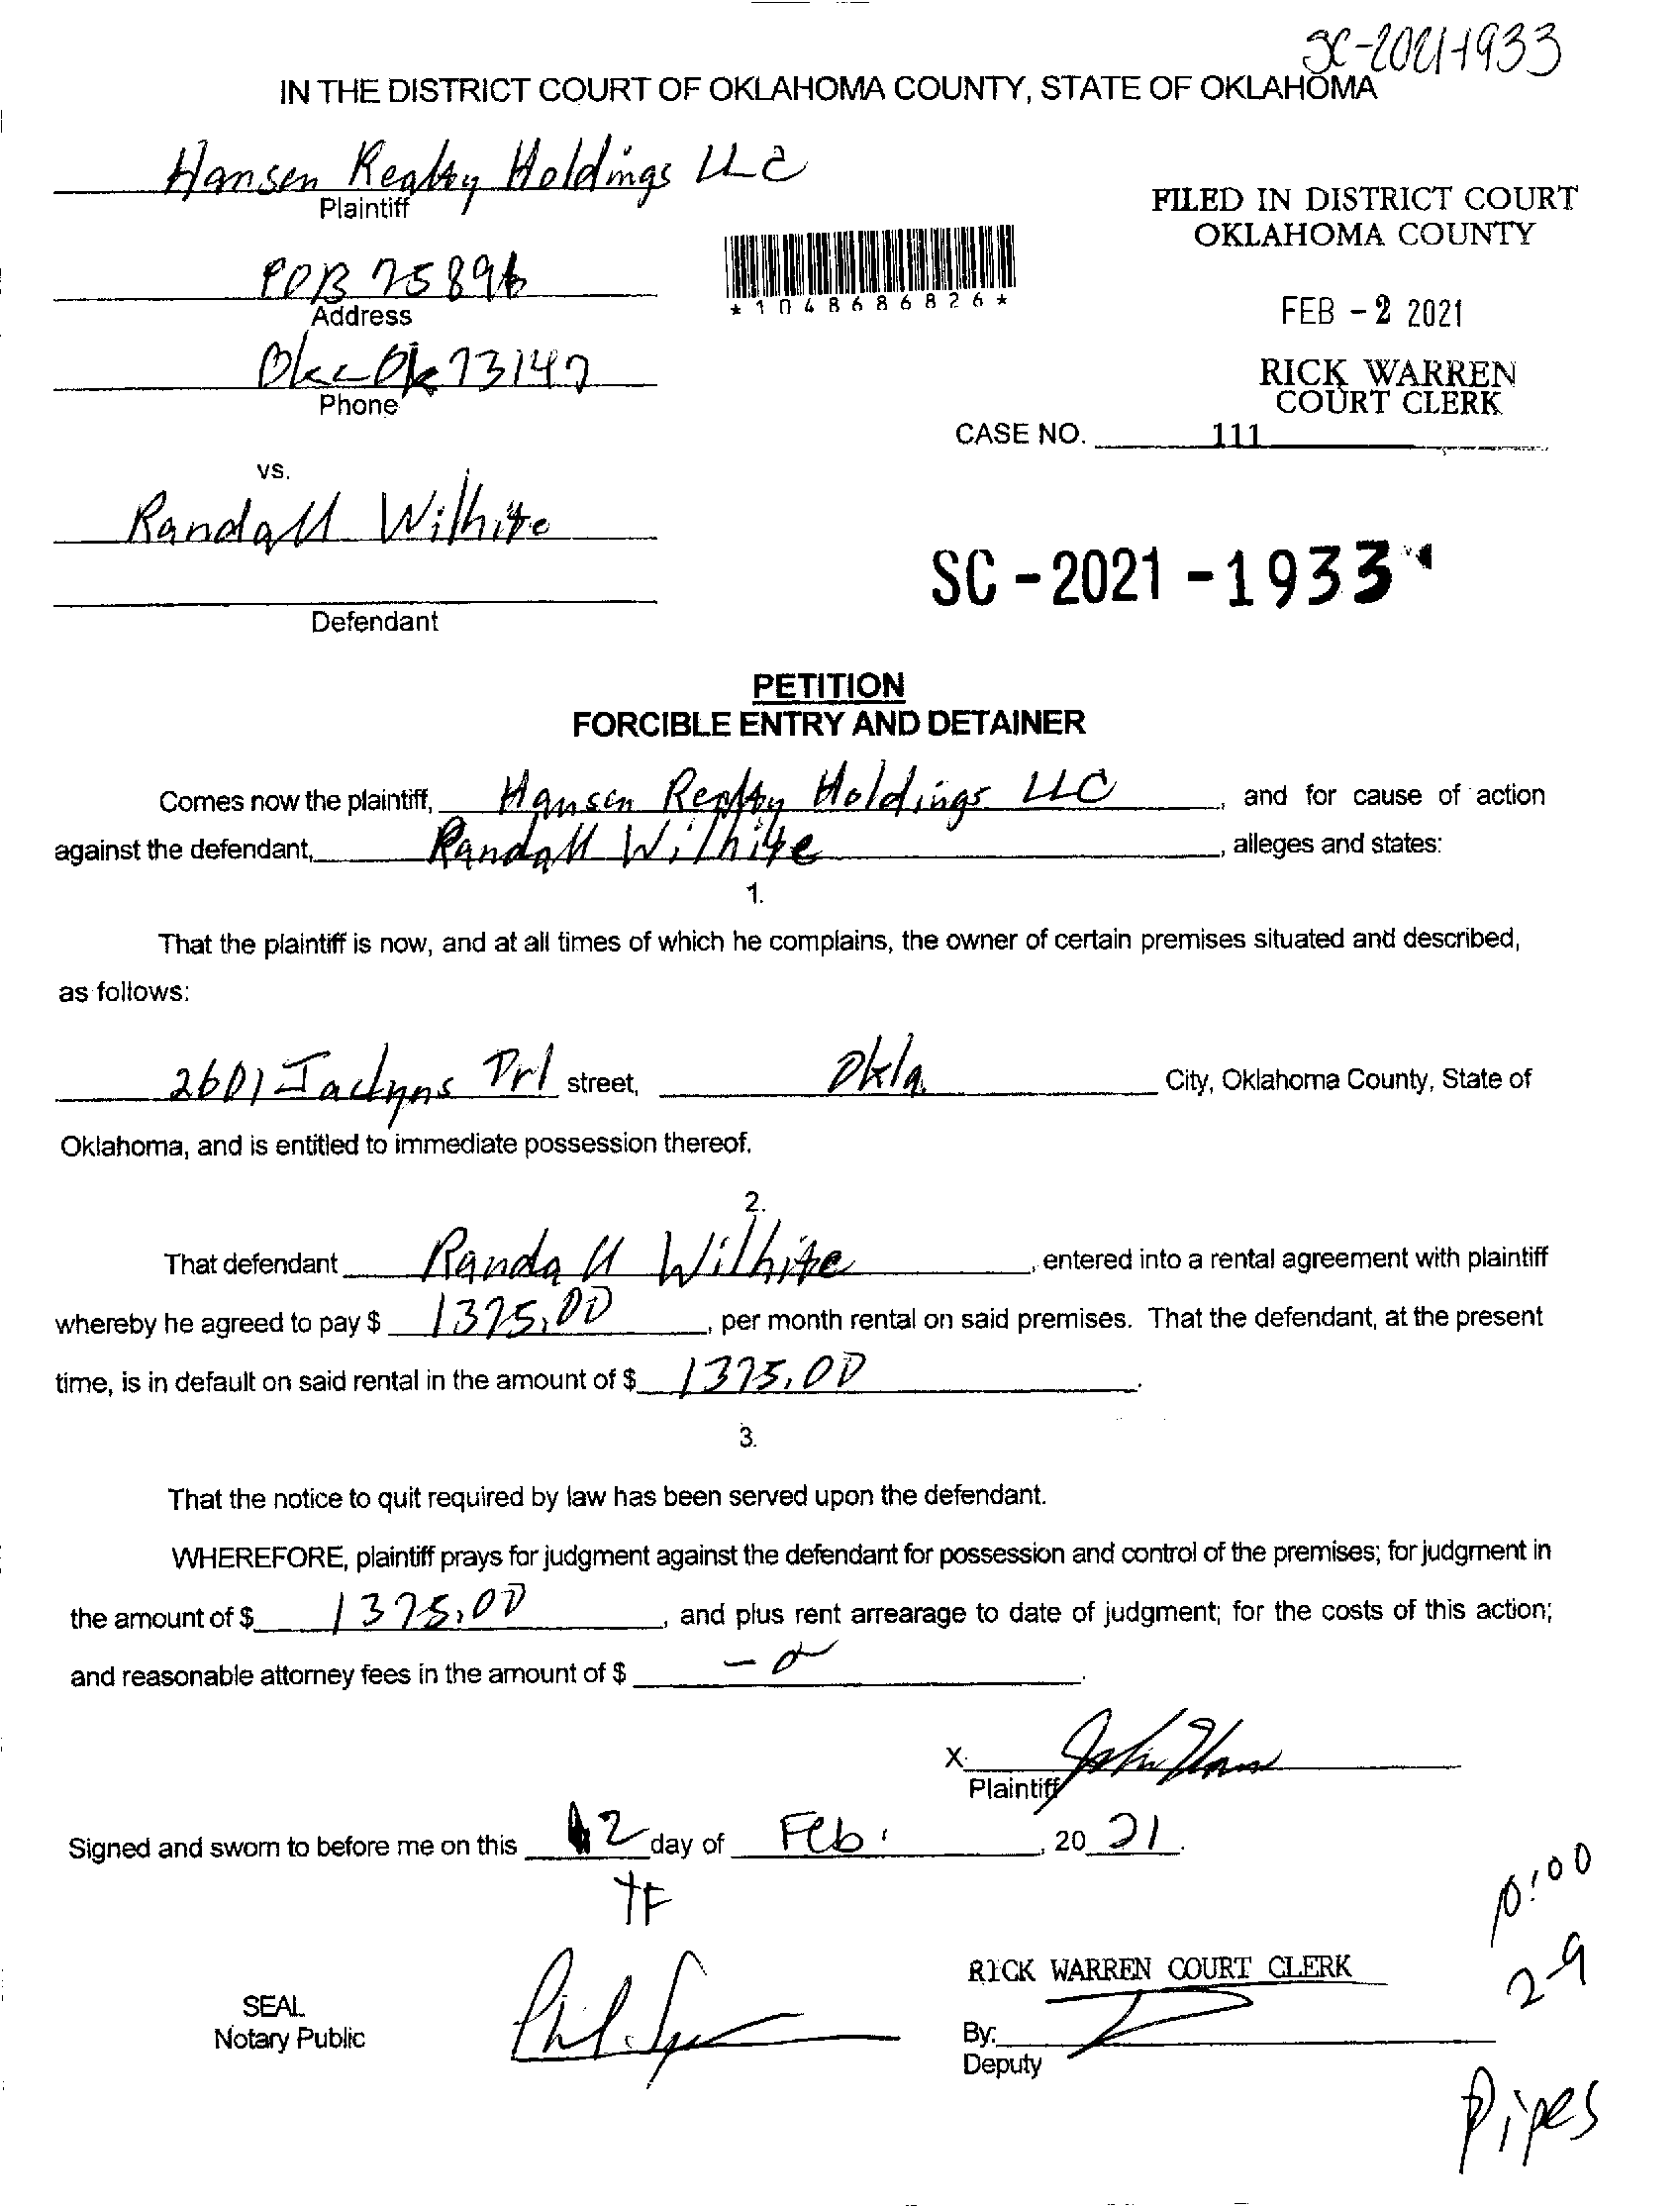 SC-2021-1933
IN THE DISTRICT COURT OF OKLAHOMA COUNTY, STATE OF OKLAHOMA
Hansen Realty Holdings LLC
Plaintiff
FILED IN DISTRICT COURT
OKLAHOMA COUNTY
POB 75896
Address
*1048686826*
FEB - 2 2021
Okc Ok 73147
Phone
RICK WARREN
COURT CLERK
CASE NO. 111
vs.
Randall Wilhite
SC - 2021 - 1933
Defendant
PETITION
FORCIBLE ENTRY AND DETAINER
Comes now the plaintiff, Hansen Realty Holdings LLC, and for cause of action
against the defendant, Randall Wilhite, alleges and states:
1.
That the plaintiff is now, and at all times of which he complains, the owner of certain premises situated and described,
as follows:
2601 Jaclyns Drl street, Okla City, Oklahoma County, State of
Oklahoma, and is entitled to immediate possession thereof.
2.
That defendant Randall Wilhite, entered into a rental agreement with plaintiff
whereby he agreed to pay $ 1375.00, per month rental on said premises. That the defendant, at the present
time, is in default on said rental in the amount of $ 1375.00.
3.
That the notice to quit required by law has been served upon the defendant.
WHEREFORE, plaintiff prays for judgment against the defendant for possession and control of the premises; for judgment in
the amount of $ 1375.00, and plus rent arrearage to date of judgment; for the costs of this action;
and reasonable attorney fees in the amount of $ -0.
X John Hansen
Plaintiff
Signed and sworn to before me on this 2 day of Feb., 20 21.
TF
10:00
2-9
RICK WARREN COURT CLERK
SEAL
Notary Public
By:
Deputy
Pipes